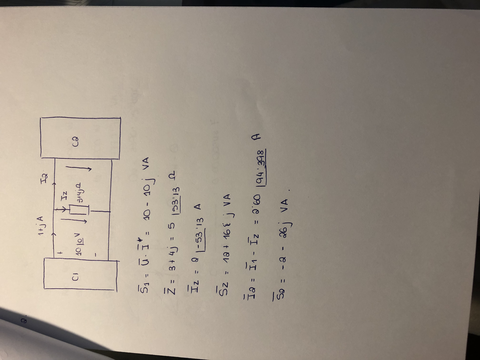 1+j A
I2
Iz
10 |0 V
+
-
3+4j Ω
C1
C2
S̄1 = Ū · Ī* = 10 - 10 j VA
Z̄ = 3 + 4j = 5 |53'13 Ω
Īz = 2 |-53'13 A
S̄z = 12 + 16 j VA
Ī2 = Ī1 - Īz = 2'60 |94'398 A
S̄2 = -2 - 26 j VA.